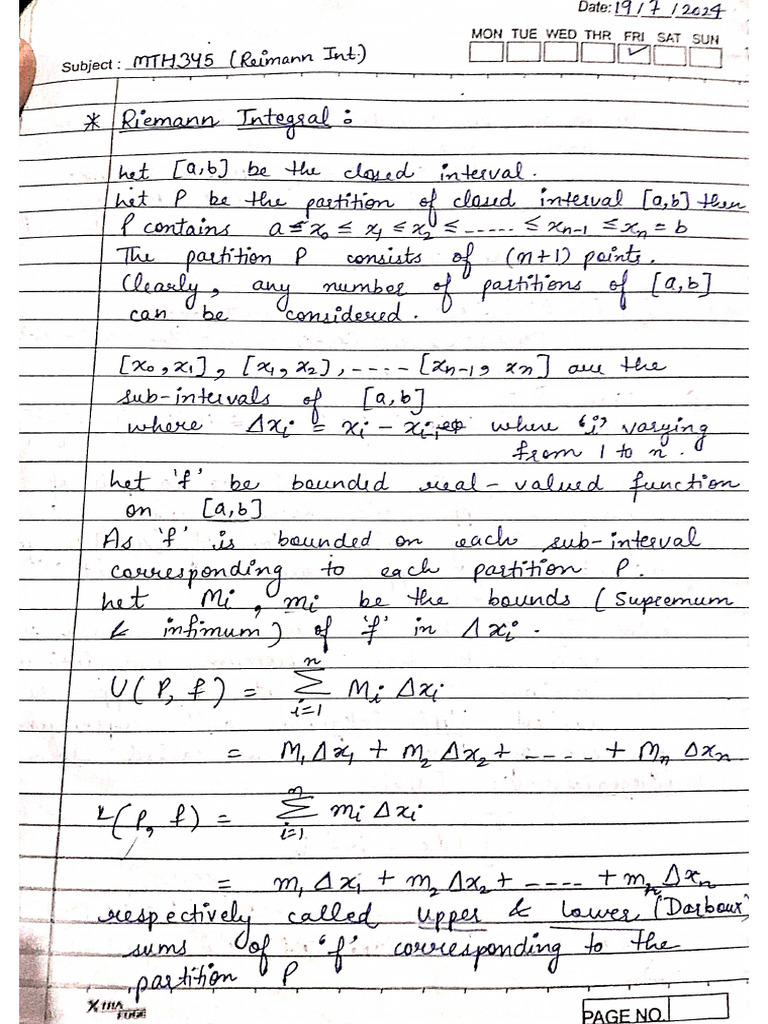 Date: 19/7/2024
MON TUE WED THR FRI SAT SUN
Subject : MTH345 (Reimann Int.)
* Riemann Integral :
Let [a,b] be the closed interval.
Let P be the partition of closed interval [a,b] then
P contains a ≤ x₀ ≤ x₁ ≤ x₂ ≤ ----- ≤ xₙ₋₁ ≤ xₙ = b
The partition P consists of (n+1) points.
Clearly, any number of partitions of [a,b]
can be considered.
[x₀, x₁], [x₁, x₂], ----- [xₙ₋₁, xₙ] are the
sub-intervals of [a,b]
where Δxᵢ = xᵢ - xᵢ₋₁ where 'i' varying
from 1 to n.
Let 'f' be bounded real-valued function
on [a,b]
As 'f' is bounded on each sub-interval
corresponding to each partition P.
Let Mᵢ, mᵢ be the bounds (Supremum
& infimum) of 'f' in Δxᵢ.
U(P, f) = n∑i=1 Mᵢ Δxᵢ
= M₁Δx₁ + M₂ Δx₂ + ---- + Mₙ Δxₙ
L(P, f) = n∑i=1 mᵢ Δxᵢ
= m₁Δx₁ + m₂Δx₂ + ---- + mₙΔxₙ
respectively called upper & lower (Darboux)
sums of 'f' corresponding to the
partition P
PAGE NO.